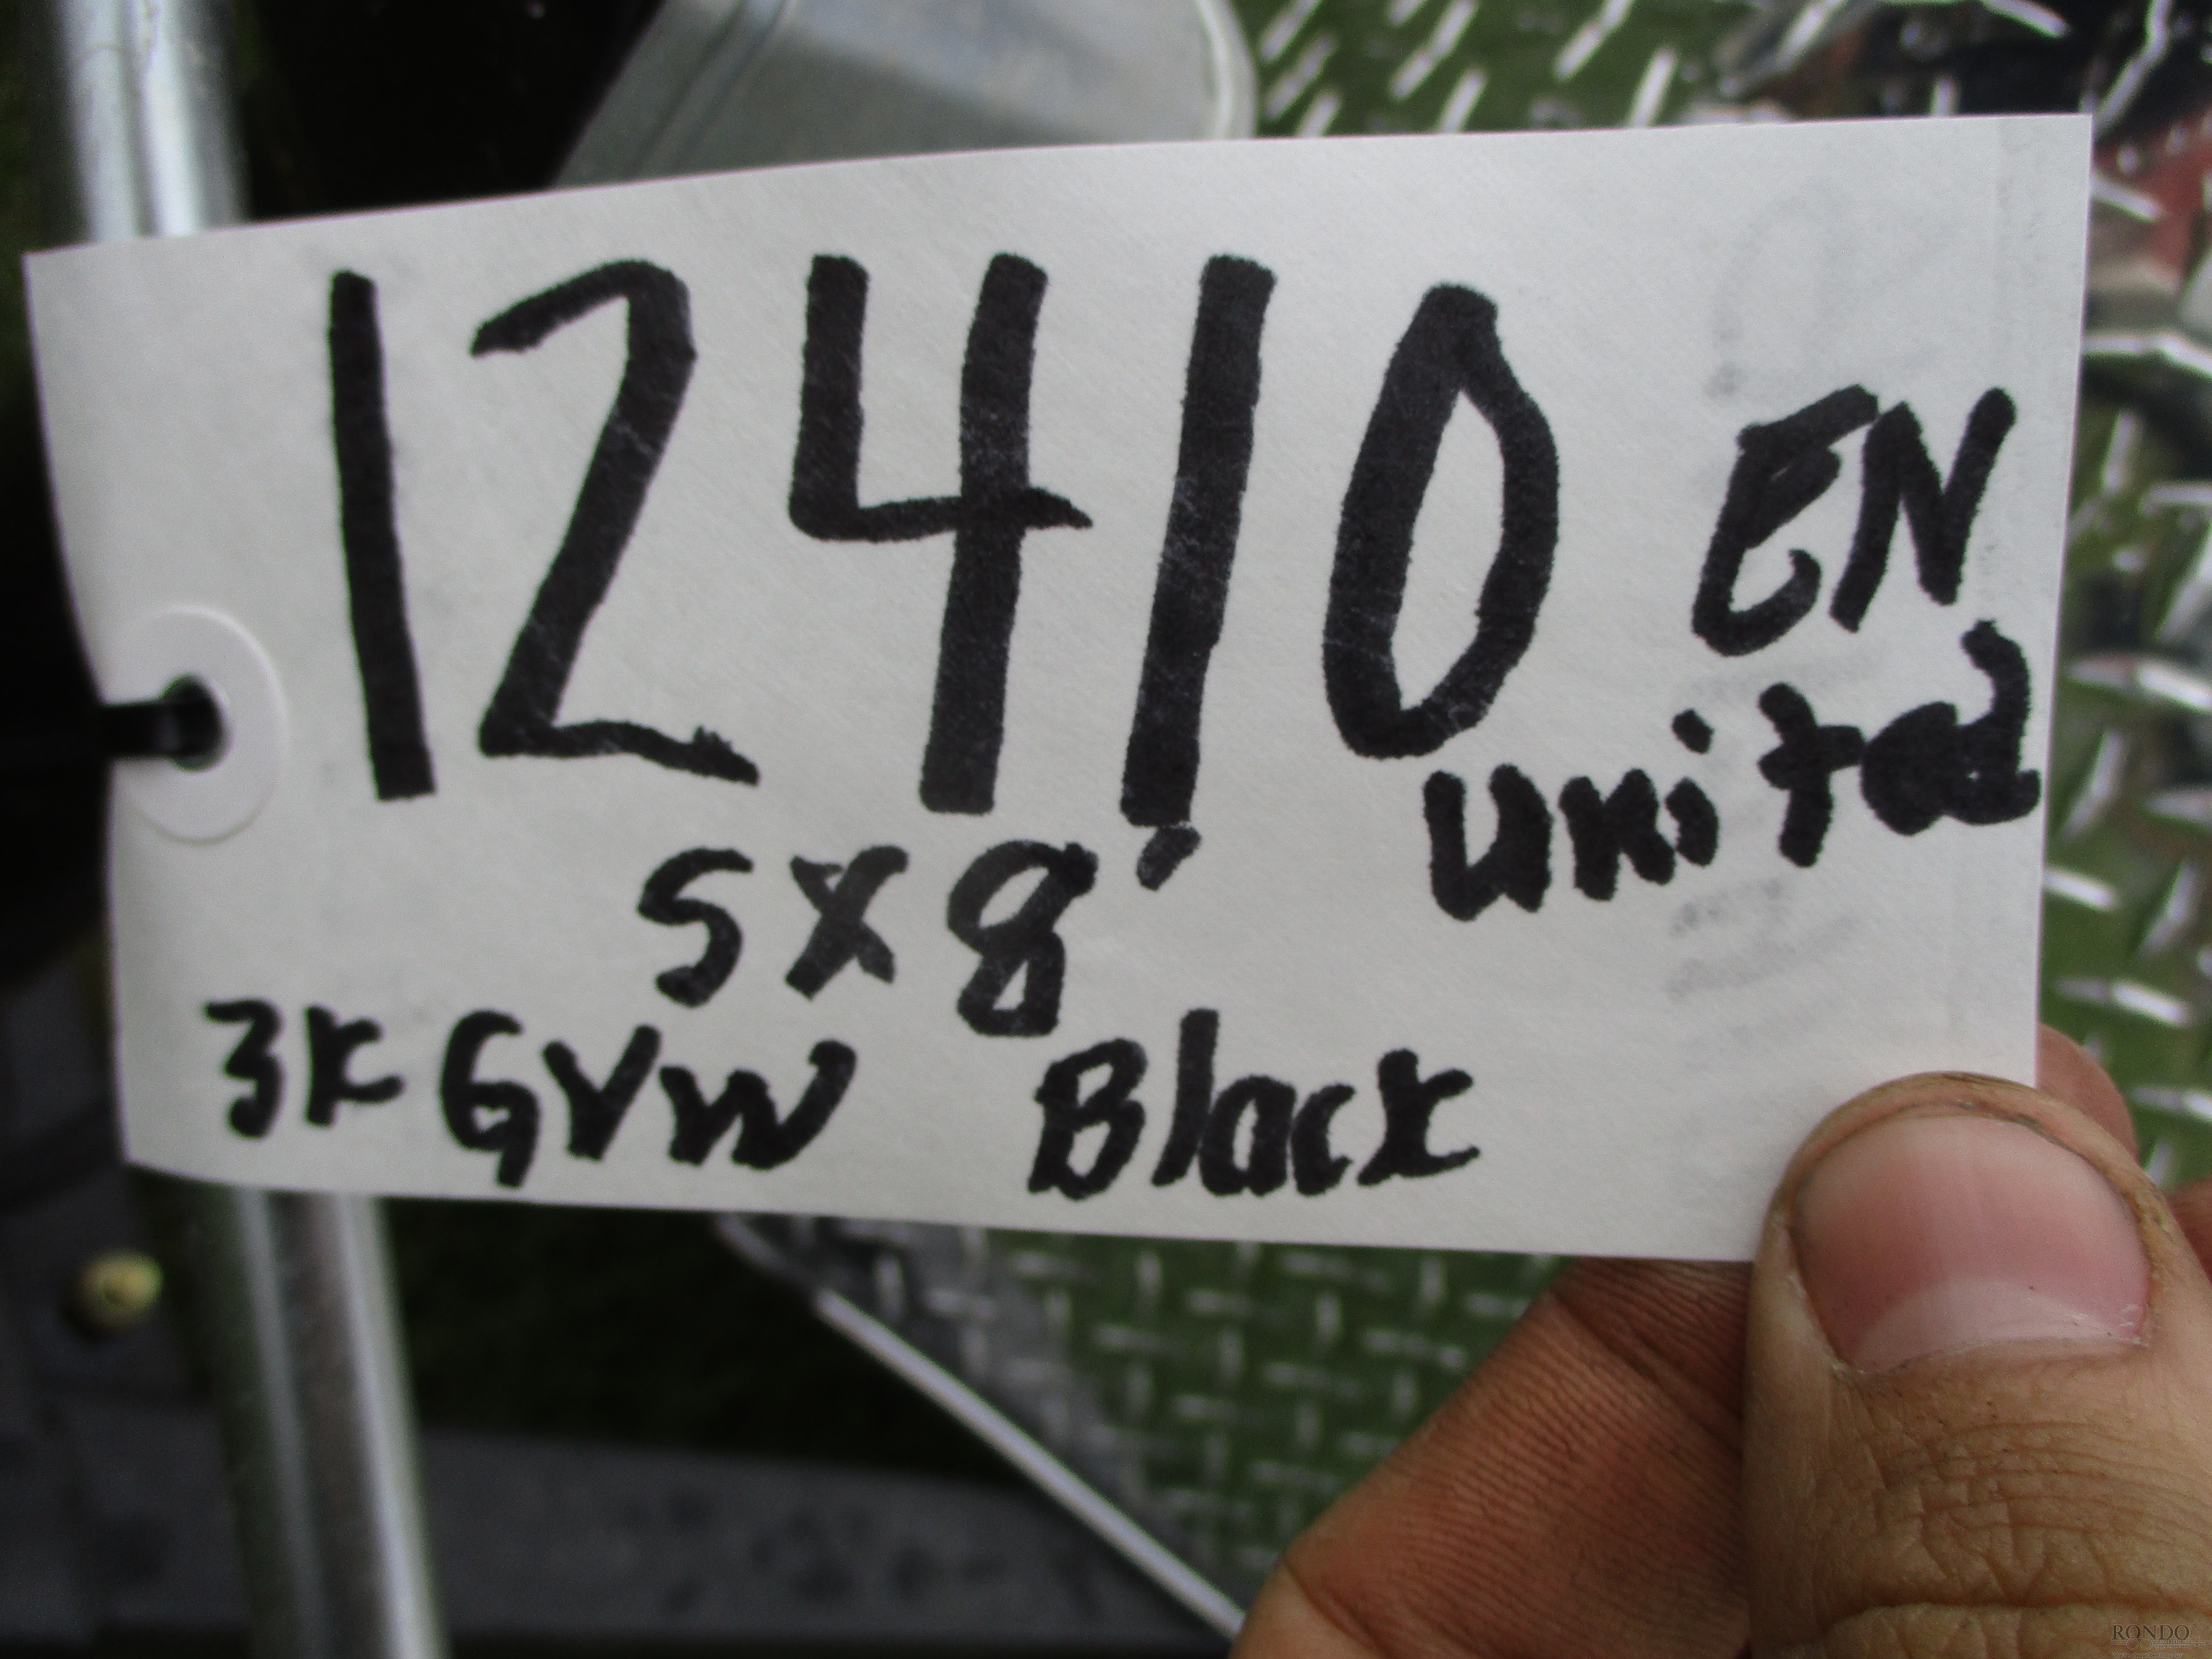 12410 EN
United
5x8'
3K GVW Black
RONDO